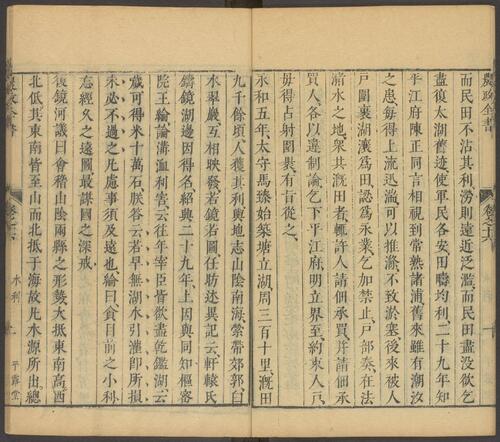 農政全書
卷之十六
而民田不沾其利澇則遠近泛濫而民田盡沒欲乞
盡復太湖舊迹使軍民各安田疇均利二十九年知
平江府陳正同言相視到常熟諸浦舊來雖有潮汐
之患每得上流迅湍可以推滌不致淤塞後來被人
戶圍裹湖瀼爲田認爲永業乞加禁止戶部奏在法
瀦水之地衆共漑田者輒許人請佃承買并請佃承
買人各以違制論乞下平江府明立界至約束人戶
毋得占射圍裹有旨從之
永和五年太守馬臻始築塘立湖周三百十里漑田
九千餘頃人獲其利輿地志山陰南海縈帶郊郭白
水翠巖互相映發若鏡若圖任昉述異記云軒轅氏
鑄鏡湖邊因得名紹興二十九年上因與同知樞密
院王綸論溝洫利害云往年宰臣皆欲盡乾鑑湖云
歲可得米十萬石朕答云若旱無湖水引灌卽所損
未必不過之凡處事須及遠也綸曰貪目前之小利
忘經久之遠圖最謀國之深戒
復鏡河議曰會稽山陰兩縣之形勢大抵東南高西
北低其東南皆至山而北抵于海故凡水源所出總
農政全書
卷之十六
水利
十一
平露堂